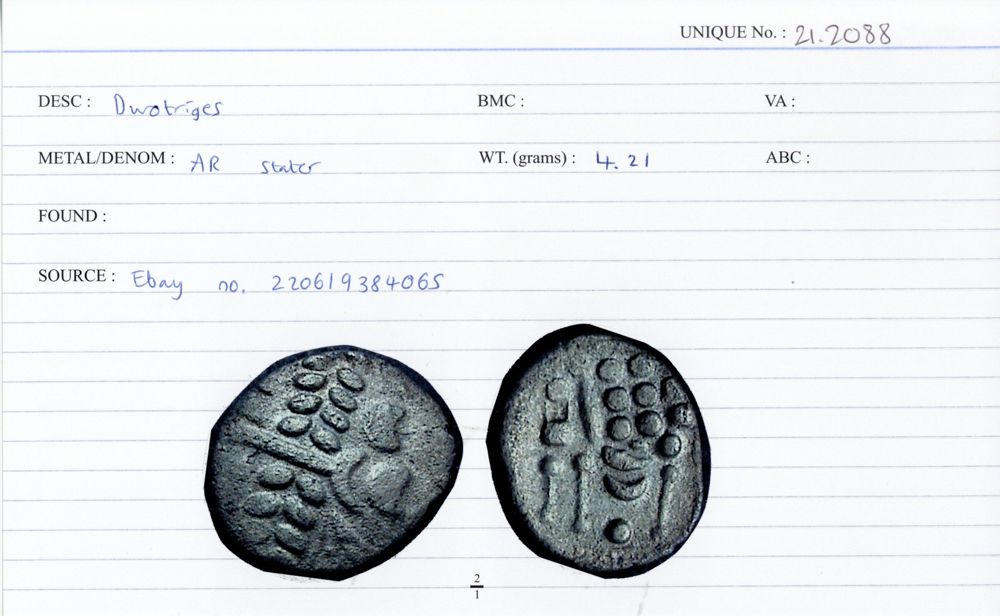 UNIQUE No. : 21.2088
DESC : Durotriges BMC : VA :
METAL/DENOM : AR stater WT. (grams) : 4.21 ABC :
FOUND :
SOURCE : Ebay no. 220619384065
2
1